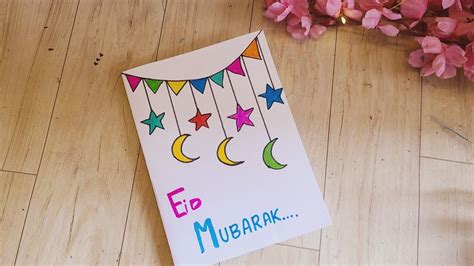 Eid
Mubarak....